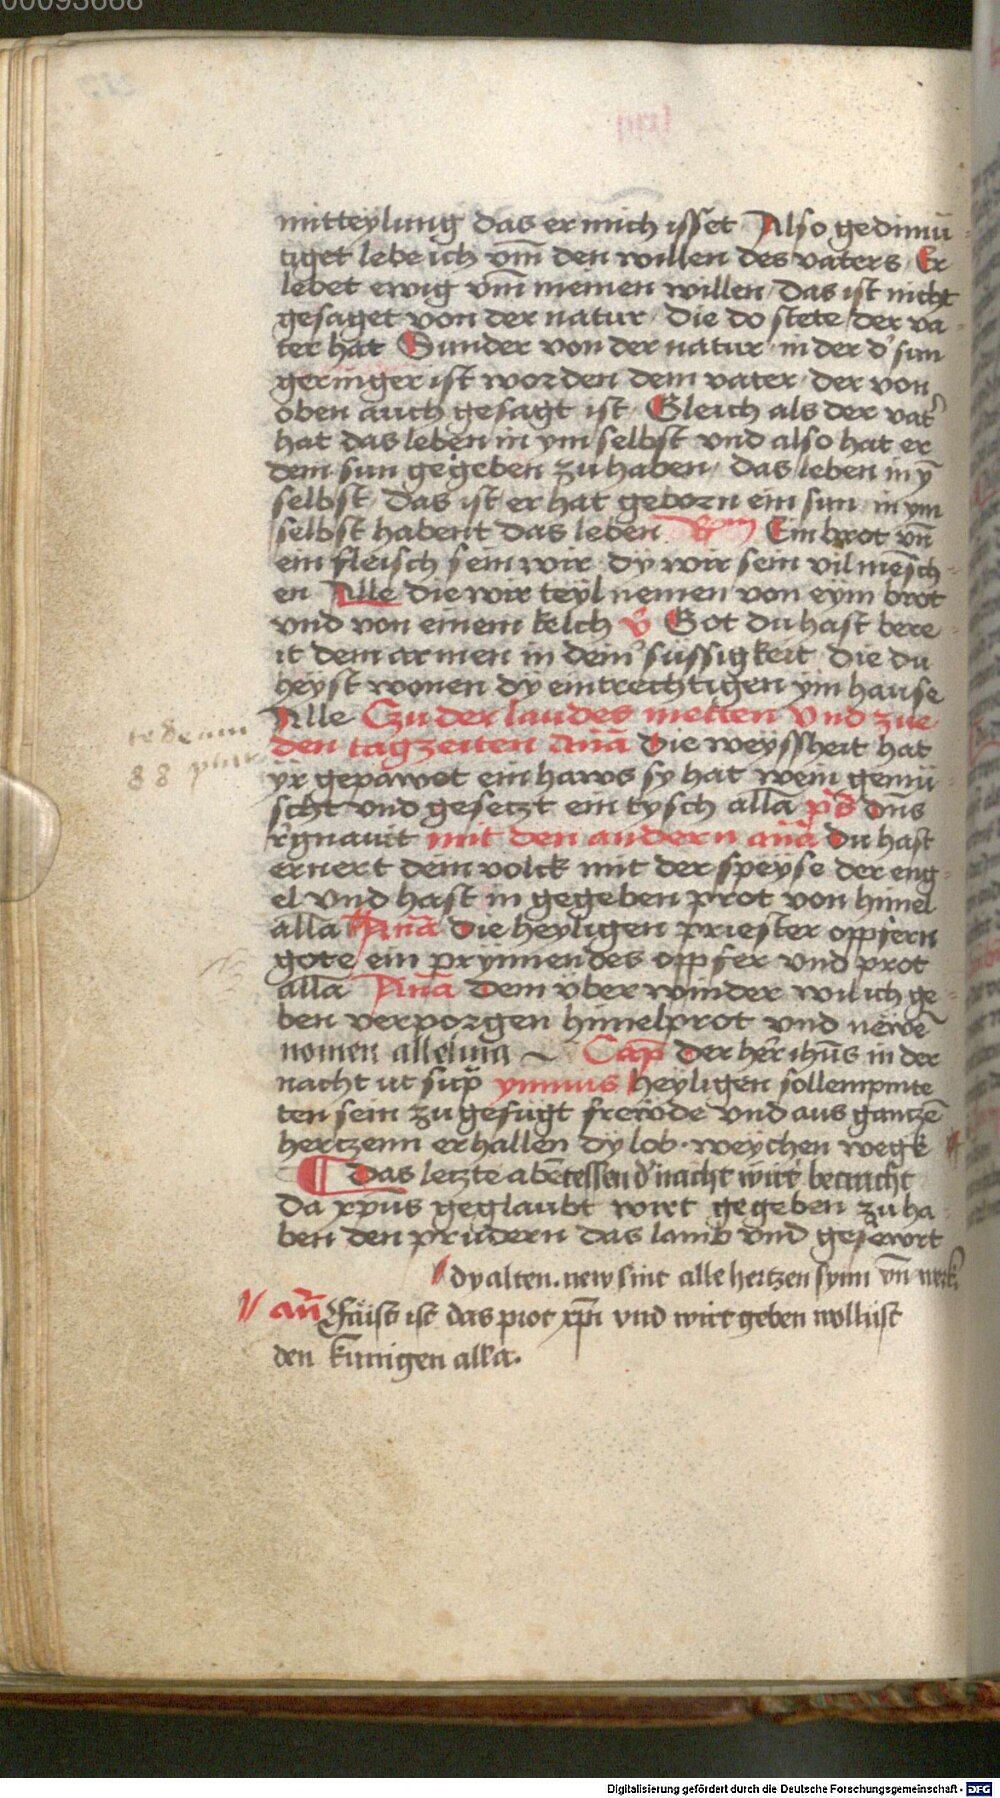 00093668
mitteylung das er mich isset Also gedimū
tiget lebe ich vm̄ den willen des vaters Er
lebet ewig vm̄ meinen willen das ist nicht
gesaget von der natur die do stete der va
ter hat Sunder von der natur in der d' sun
geringer ist worden dem vater der von
oben auch gesagt ist Gleich als der vat'
hat das leben in ym selbst vnd also hat er
dem sun gegeben zu haben das leben in ȳ
selbst das ist er hat geborn ein sun in ym
selbst habent das leben Ein brot vn̄
ein fleisch sein wir dy wir sein vil mēsch
en Alle die wir teyl nemen von eym brot
vnd von einem kelch v̄ Got du hast bere
it dem armen in dein' süssigkeit die du
heyst wonen dy eintrechtigen ym hause
Alle Czu der laudes metten vnd zue
den tagzeiten Anā Die weyssheit hat
te deum
88
yr gepawet ein haws sy hat wein gemü
scht vnd gesetzt ein tysch alla ps Dn̄s
rignauit mit den andern anā Du hast
ernert dein volck mit der speyse der eng
el vnd hast in gegeben prot von himel
alla Anā Die heyligen priester oppfern
gote ein prynnendes oppfer vnd prot
alla Anā Dem über winder wil ich ge
ben verporgen himelprot vnd newē
nomen alleluia Cap̄ Der her' ihūs in der
nacht ut sup̄ ymnus Heyligen sollempnite
ten sein zu gefügt frewde vnd aus gantzē
hertzenn erhallen dy lob weychen wegk
Das letzte abētessen d' nacht wirt betracht
Da xp̄us geglaubt wirt gegeben zu ha
ben den prüdern das lamb vnd gesewort
dy alten. new sint alle hertzen synn vn̄ werk
an̄ Faist ist das prot xp̄i vnd wirt geben wollust
den kunigen alla.
Digitalisierung gefördert durch die Deutsche Forschungsgemeinschaft - DFG